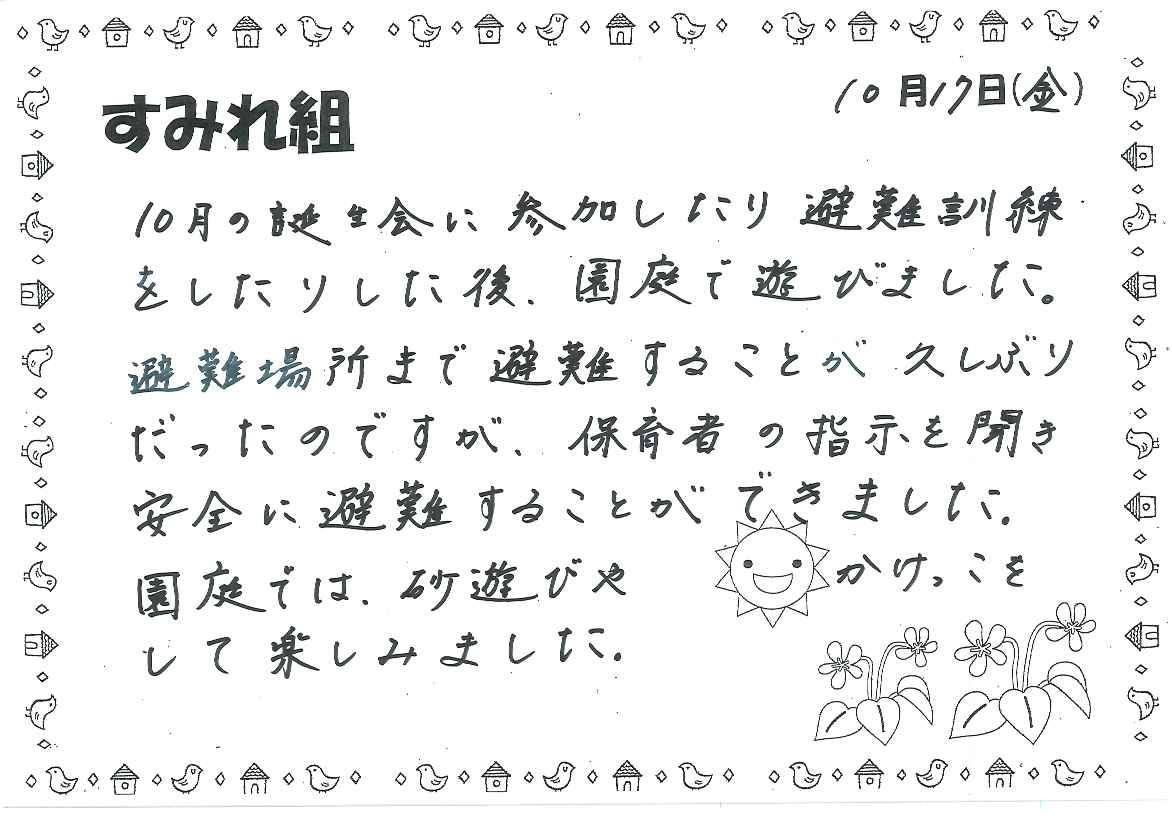 すみれ組
10月17日(金)
10月の誕生会に参加したり避難訓練
をしたりした後、園庭で遊びました。
避難場所まで避難することが久しぶり
だったのですが、保育者の指示を聞き
安全に避難することができました。
園庭では、砂遊びや かけっこを
して楽しみました。